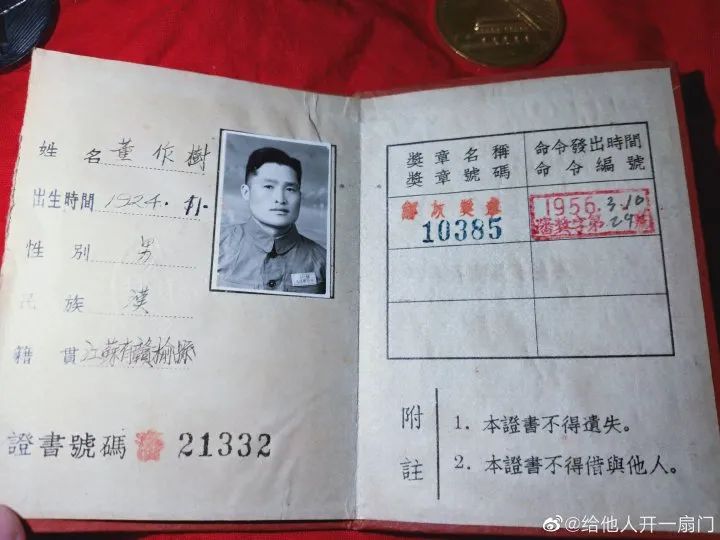 姓名 董作樹
出生時間 1924.11.
性别 男
民族 漢
籍貫 江蘇省贛榆縣
證書號碼 瀋 21332
獎章名稱
獎章號碼
命令發出時間
命令編號
解放獎章
10385
1956.3.10
瀋獎字第24號
附註
1. 本證書不得遺失。
2. 本證書不得借與他人。
@给他人开一扇门